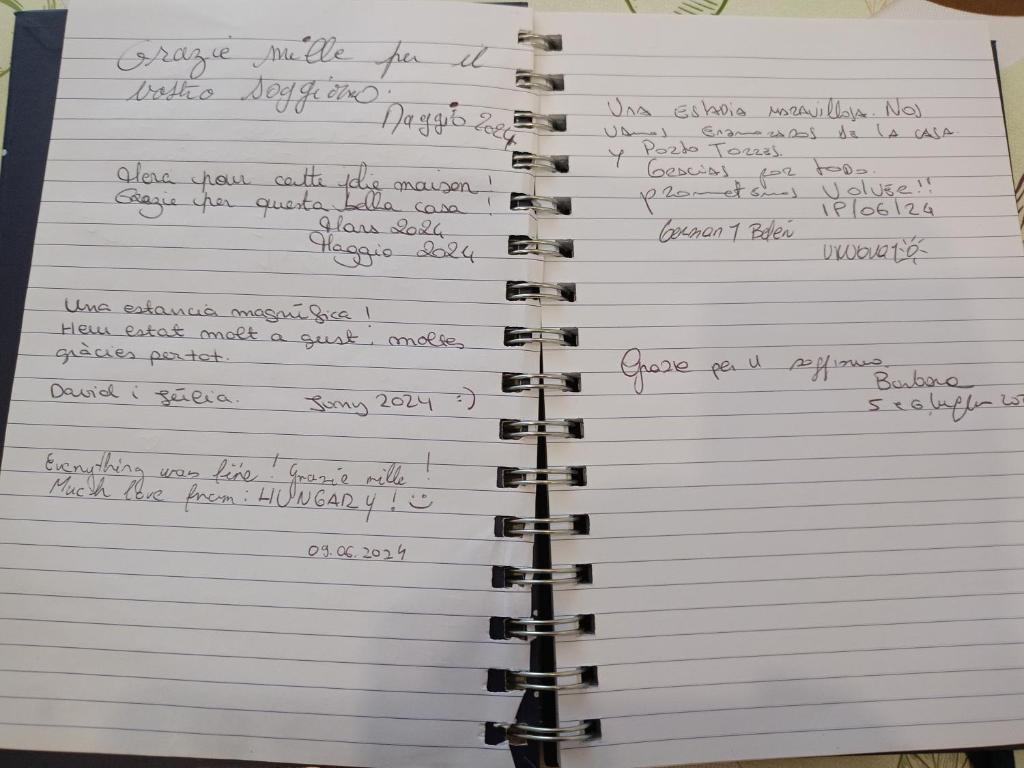 Grazie mille per il
vostro soggiorno.
Maggio 2024
Merci pour cette jolie maison !
Grazie per questa bella casa !
Mars 2024
Maggio 2024
Una estancia magnífica !
Hem estat molt a gust, moltes
gràcies per tot.
David i Júlia. Juny 2024 :)
Everything was fine! Grazie mille!
Much love from: HUNGARY ! ☺
09.06.2024
UNA ESTADIA MARAVILLOSA. NOS
VAMOS ENAMORADOS DE LA CASA
Y PORTO TORRES.
GRACIAS POR TODO.
PROMETEMOS VOLVER!!
18/06/24
German Y Belén
Grazie per il soggiorno
Barbara
5 e 6 luglio